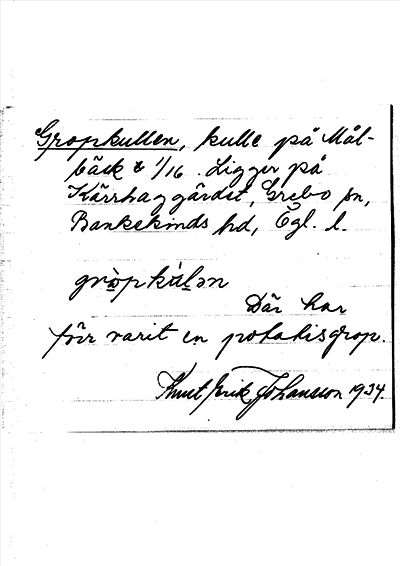 Gropkullen, kulle på Mål-
bäck 1/16. Ligger på
Kärrhaggärdet, Grebo sn,
Bankekinds hd, Ögl. l.
gròpkálən
Där har
förr varit en potatisgrop.
Knut Erik Johansson 1934.